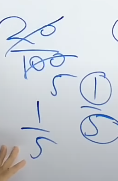 20
100
5
1
5
1
5